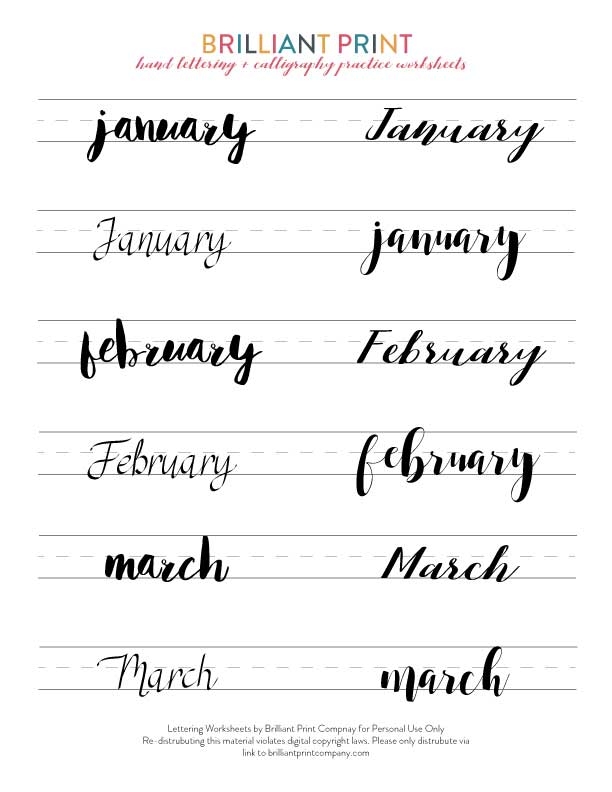 BRILLIANT PRINT
hand lettering + calligraphy practice worksheets
january January
January january
february February
February february
march March
March march
Lettering Worksheets by Brilliant Print Compnay for Personal Use Only
Re-distrubuting this material violates digital copyright laws. Please only distrubute via
link to brilliantprintcompany.com